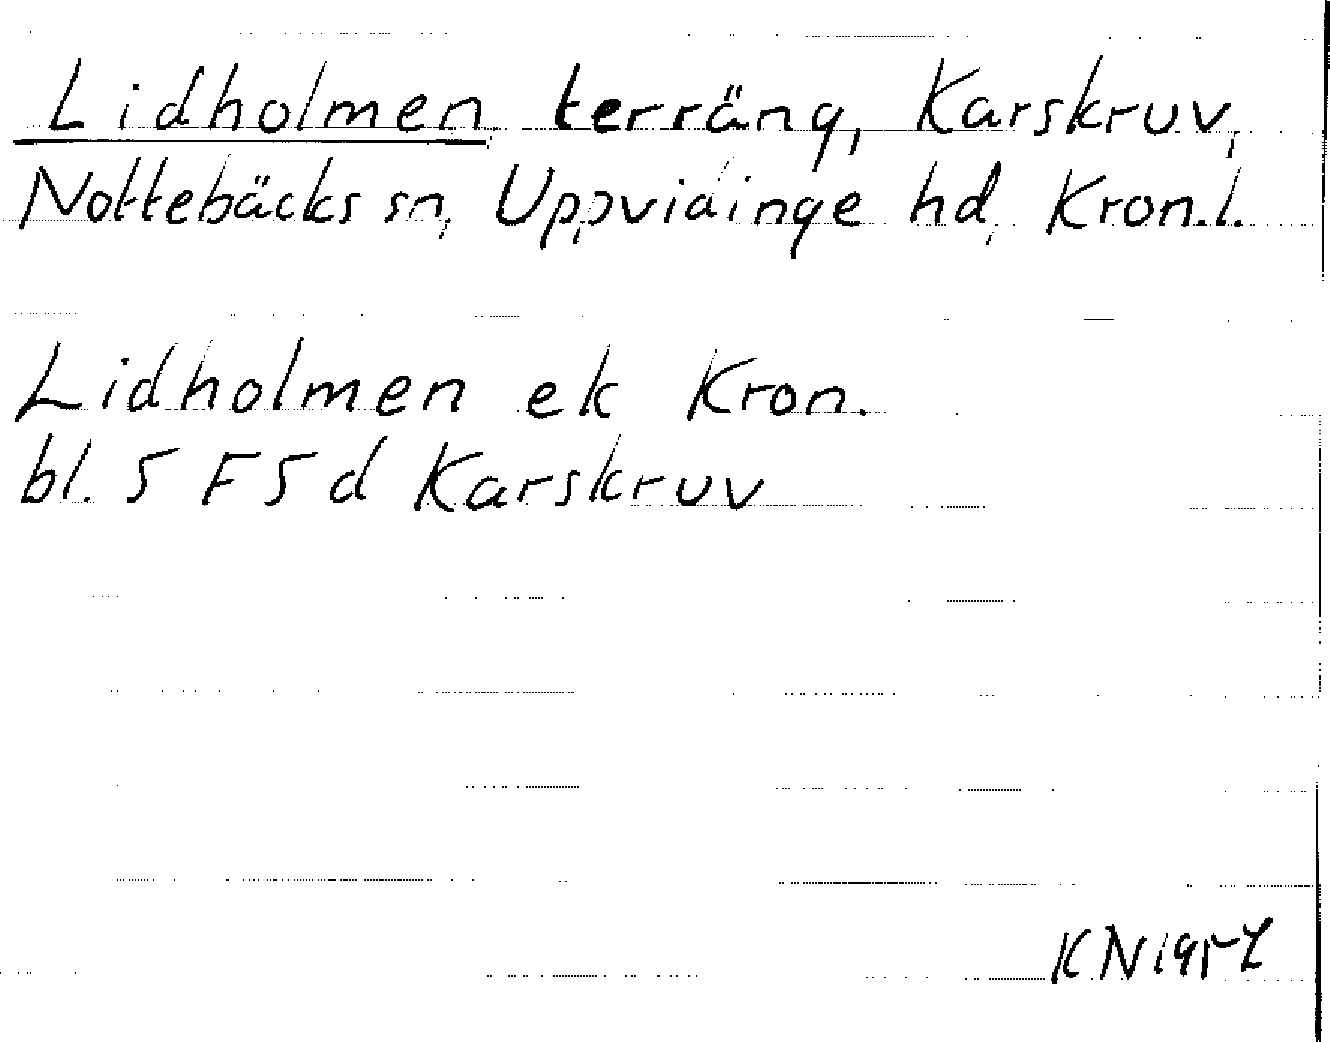 Lidholmen, terräng, Karskruv,
Nottebäcks sn, Uppvidinge hd, Kron.l.
Lidholmen ek Kron.
bl. 5 F 5 d Karskruv
KN